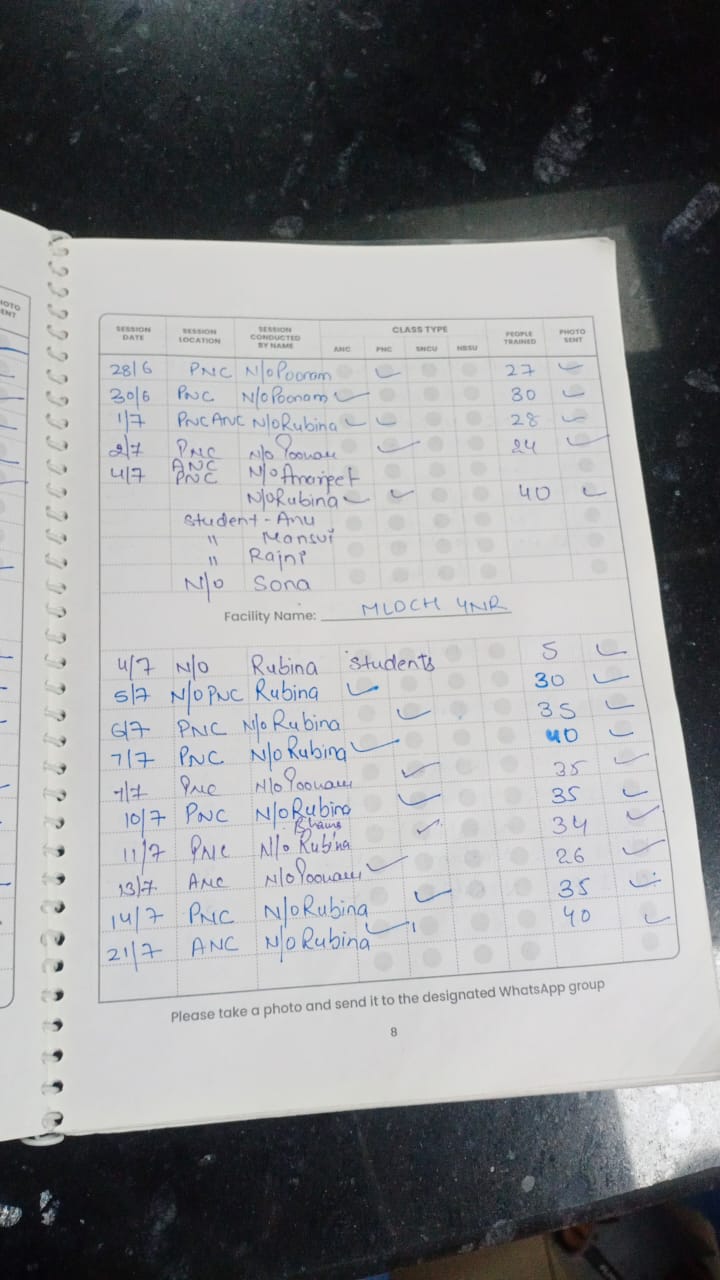 HOTO
ENT
SESSION DATE SESSION LOCATION SESSION CONDUCTED BY NAME CLASS TYPE PEOPLE TRAINED PHOTO SENT
ANC PNC SNCU NBSU
28/6 PNC N/o Poonam ✓ 27 ✓
30/6 PNC N/o Poonam ✓ 30 ✓
1/7 PNC ANC N/o Rubina ✓ ✓ 28 ✓
2/7 PNC N/o Poonam ✓ 24 ✓
4/7 ANC PNC N/o Amarjeet
N/o Rubina ✓ ✓ 40 ✓
Student - Anu
" Mansvi
" Rajni
N/o Sona
Facility Name: MLDCH YNR
4/7 N/O Rubina Students 5 ✓
5/7 N/O PNC Rubina ✓ 30 ✓
6/7 PNC N/o Rubina ✓ 35 ✓
7/7 PNC N/o Rubina ✓ 40 ✓
7/7 PNC N/o Poonam ✓ 35 ✓
10/7 PNC N/o Rubina ✓ 35 ✓
11/7 PNC N/o Rubina ✓ 34 ✓
13/7 ANC N/o Poonam ✓ 26 ✓
14/7 PNC N/o Rubina ✓ 35 ✓
21/7 ANC N/o Rubina ✓ 40 ✓
Please take a photo and send it to the designated WhatsApp group
8